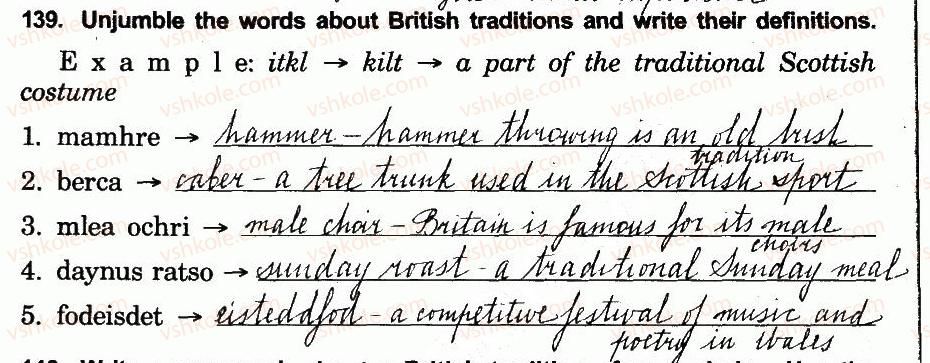 139. Unjumble the words about British traditions and write their definitions.
E x a m p l e: itkl → kilt → a part of the traditional Scottish
costume
1. mamhre → hammer – hammer throwing is an old Irish
tradition
2. berca → caber – a tree trunk used in the Scottish sport
3. mlea ochri → male choir – Britain is famous for its male
choirs
4. daynus ratso → sunday roast - a traditional Sunday meal
5. fodeisdet → eisteddfod - a competitive festival of music and
poetry in Wales